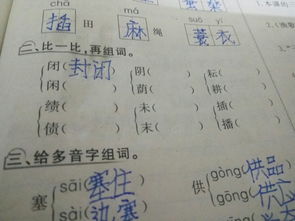 chā má suō yī
插 田 麻 绳 蓑 衣
1.本课的
2.《
二、比一比,再组词。
闭(封闭) 阴( ) 耘(
闲( ) 荫( ) 耕(
绩( ) 未( ) 插(
债( ) 末( ) 播(
三、给多音字组词。
塞 sāi(塞住) 供 gōng(供品
sài(边塞 gòng(供